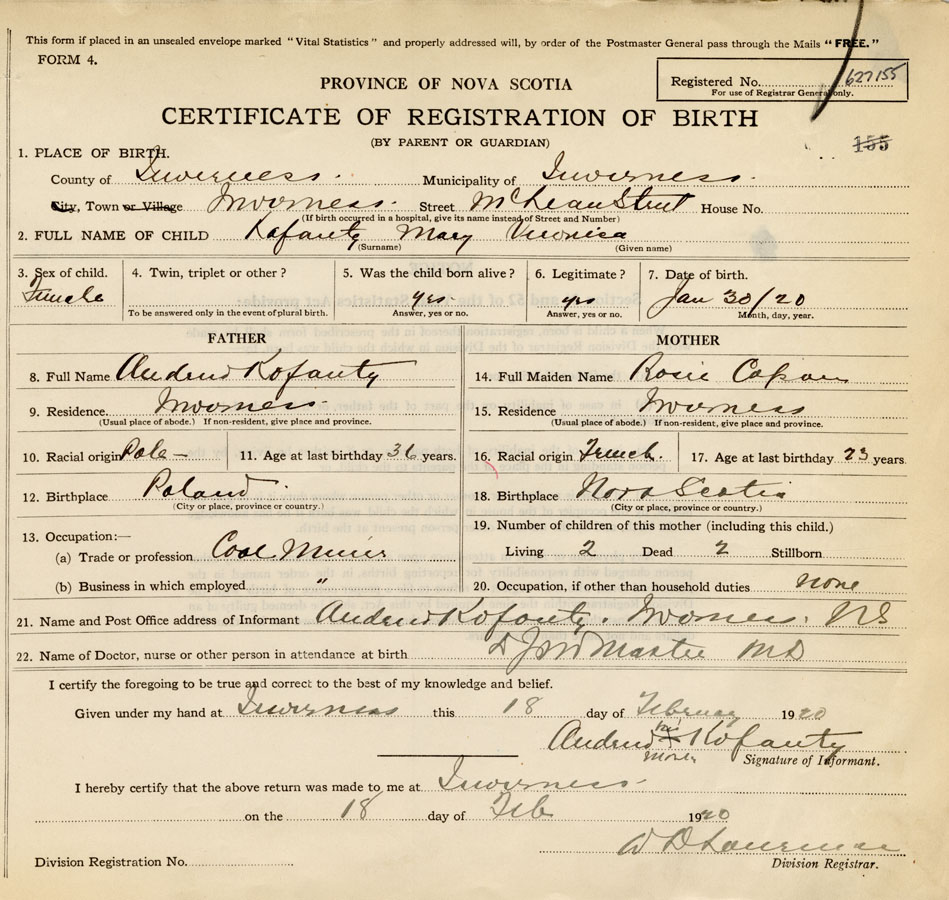 This form if placed in an unsealed envelope marked "Vital Statistics" and properly addressed will, by order of the Postmaster General pass through the Mails "FREE."
FORM 4.
PROVINCE OF NOVA SCOTIA
Registered No. 627155
For use of Registrar General only.
CERTIFICATE OF REGISTRATION OF BIRTH
(BY PARENT OR GUARDIAN)
155
1. PLACE OF BIRTH.
County of Inverness. Municipality of Inverness.
City, Town or Village Inverness. Street McLean Street House No.
(If birth occurred in a hospital, give its name instead of Street and Number)
2. FULL NAME OF CHILD Kofanty Mary Veronica
(Surname) (Given name)
3. Sex of child. 4. Twin, triplet or other? 5. Was the child born alive? 6. Legitimate? 7. Date of birth.
Female yes yes Jan 30/20
To be answered only in the event of plural birth. Answer, yes or no. Answer, yes or no. Month, day, year.
FATHER MOTHER
8. Full Name Andrew Kofanty 14. Full Maiden Name Rosie
9. Residence. Inverness. 15. Residence Inverness
(Usual place of abode.) If non-resident, give place and province. (Usual place of abode.) If non-resident, give place and province.
10. Racial origin Pole – 11. Age at last birthday 36 years. 16. Racial origin French. 17. Age at last birthday 23 years.
12. Birthplace Poland. 18. Birthplace Nova Scotia
(City or place, province or country.) (City or place, province or country.)
13. Occupation:— 19. Number of children of this mother (including this child.)
(a) Trade or profession Coal Miner Living 2 Dead 2 Stillborn
(b) Business in which employed " 20. Occupation, if other than household duties none
21. Name and Post Office address of Informant Andrew Kofanty. Inverness. NS
22. Name of Doctor, nurse or other person in attendance at birth MD
I certify the foregoing to be true and correct to the best of my knowledge and belief.
Given under my hand at Inverness this 18 day of February 1920
Andrew his X Kofanty
mark Signature of Informant.
I hereby certify that the above return was made to me at Inverness.
on the 18 day of Feb 1920
W D
Division Registration No. Division Registrar.